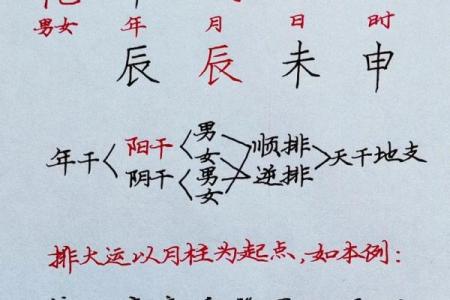 男女 年 月 日 时
辰 辰 未 申
年干 阳干 男 女 顺排 天干地支
阴干 男 女 逆排
排大运以月柱为起点,如本例: